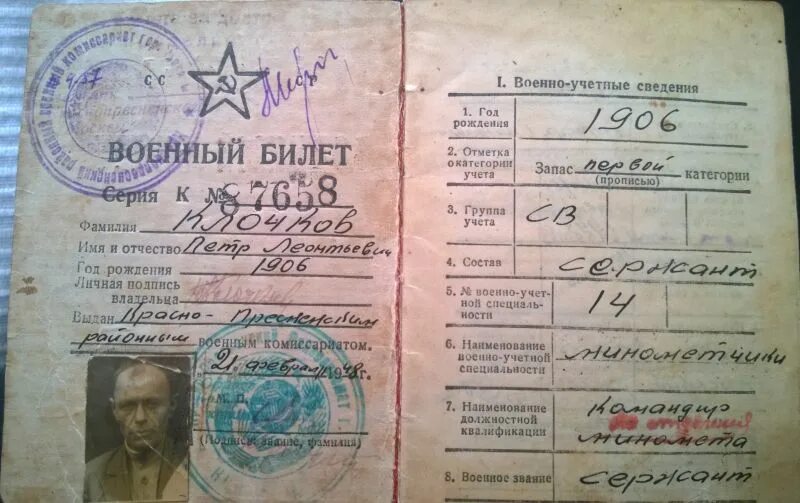 СС
ВОЕННЫЙ БИЛЕТ
Серия К № 87658
Фамилия Клочков
Имя и отчество Петр Леонтьевич
Год рождения 1906
Личная подпись
владельца
Выдан Красно-Пресненским
районным военным комиссариатом.
21 февраля 1948г.
М. П.
(Подпись, звание, фамилия)
I. Военно-учетные сведения
1. Год
рождения
1906
2. Отметка
о категории
учета
Запас первой категории
(прописью)
3. Группа
учета
СВ
4. Состав
сержант
5. № военно-учет-
ной специаль-
ности
14
6. Наименование
военно-учетной
специальности
минометчики
7. Наименование
должностной
квалификации
командир
отделения
миномета
8. Военное звание
сержант